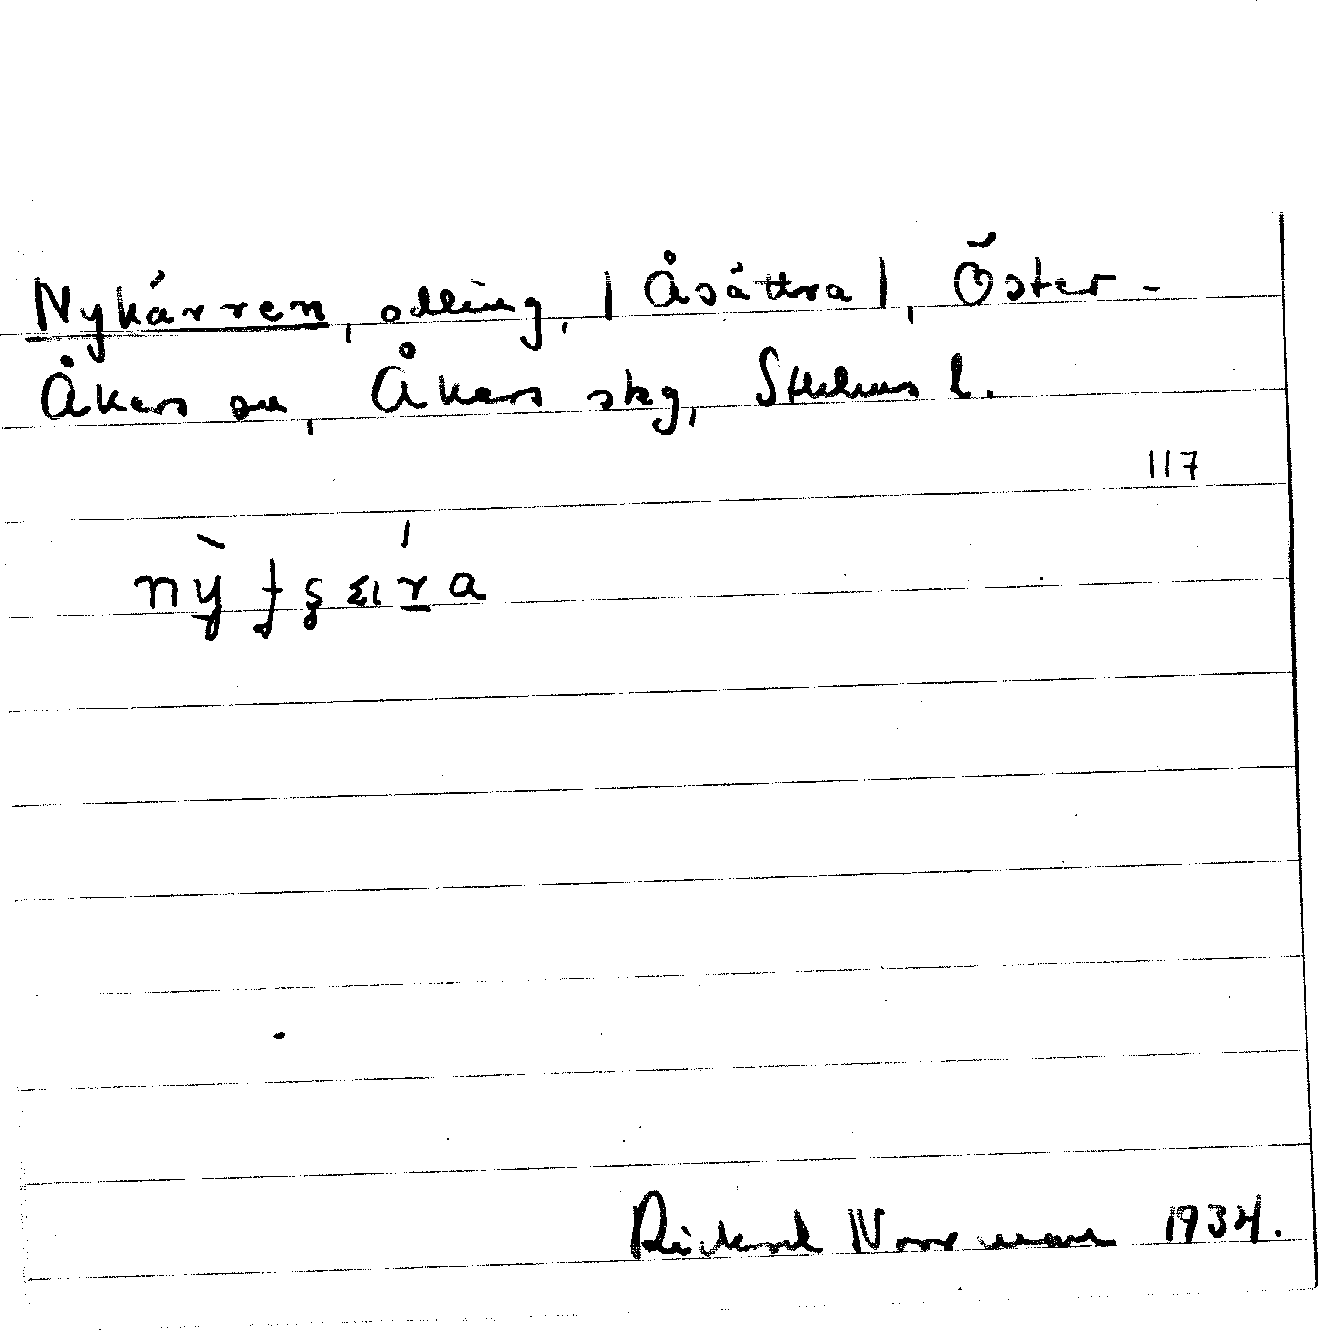 Nykärren, odling, | Åsättra |, Öster-
Åkers sn, Åkers skg, Sthlms l.
117
Rickard Norrman 1934.